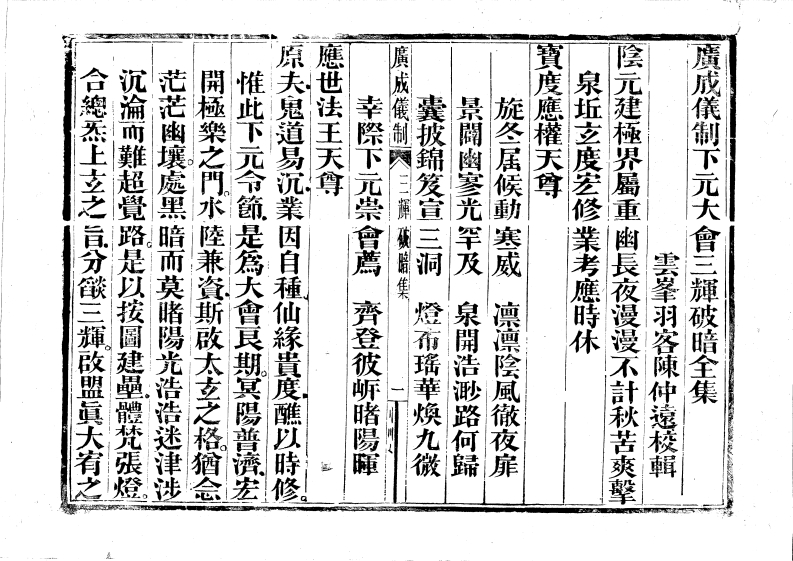 廣成儀制下元大會三輝破暗全集
雲峯羽客陳仲遠校輯
陰元建極界屬重幽長夜漫漫不計秋苦爽擊
泉坵玄度宏修業考應時休
寶度應權天尊
旋冬届候動寒威　凛凛陰風徹夜扉
景闢幽寥光罕及　泉開浩渺路何歸
囊披錦笈宣三洞　燈布瑤華煥九微
幸際下元崇會薦　齊登彼岍睹陽暉
廣成儀制　三輝破暗集　一
應世法王天尊
原夫鬼道易沉業因自種仙緣貴度醮以時修。
惟此下元令節是爲大會艮期。冥陽普濟宏
開極樂之門。水陸兼資斯啟太玄之格。猶念
茫茫幽壤。處黑暗而莫睹陽光浩浩迷津涉
沉淪而難超覺路。是以按圖建壘。體梵張燈。
合總炁上玄之旨。分燄三輝。啟盟眞大宥之